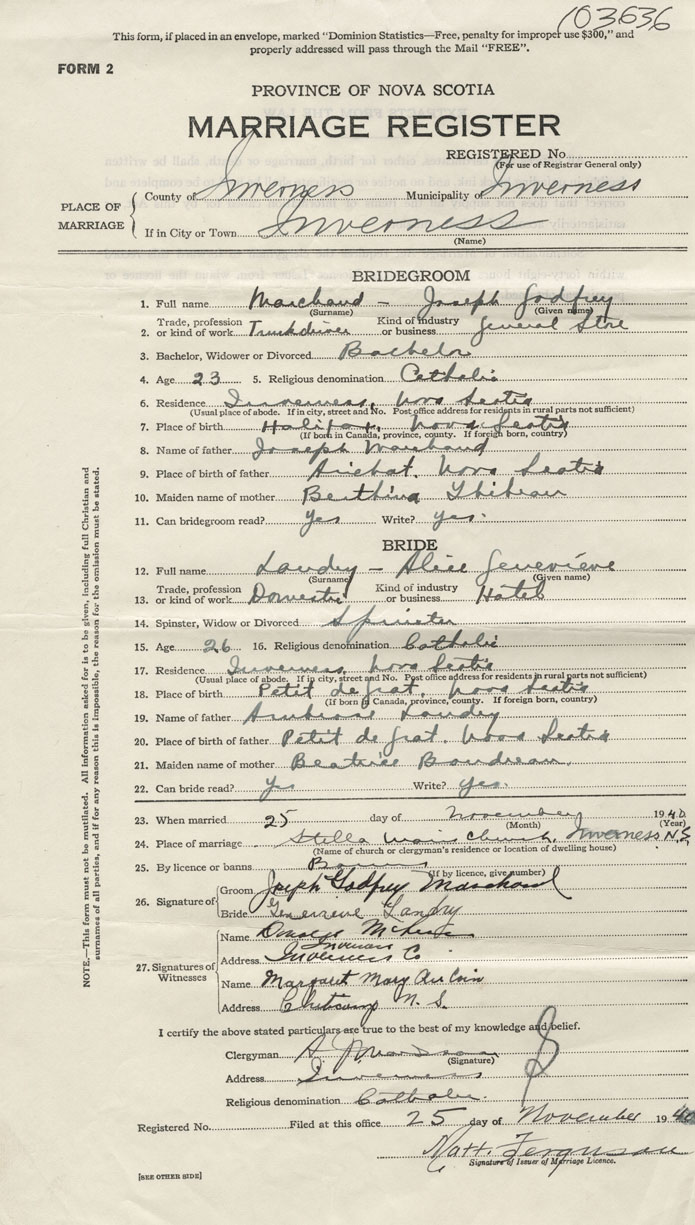 103636
This form, if placed in an envelope, marked "Dominion Statistics—Free, penalty for improper use $300," and
properly addressed will pass through the Mail "FREE".
FORM 2
PROVINCE OF NOVA SCOTIA
MARRIAGE REGISTER
REGISTERED No.
(For use of Registrar General only)
PLACE OF MARRIAGE
County of Inverness Municipality of Inverness
If in City or Town Inverness
(Name)
BRIDEGROOM
1. Full name Marchand - Joseph Godfrey
(Surname) (Given name)
2. Trade, profession or kind of work Truckdriver Kind of industry or business General Store
3. Bachelor, Widower or Divorced Bachelor
4. Age 23 5. Religious denomination Catholic
6. Residence Inverness, Nova Scotia
(Usual place of abode. If in city, street and No. Post office address for residents in rural parts not sufficient)
7. Place of birth Halifax, Nova Scotia
(If born in Canada, province, county. If foreign born, country)
8. Name of father Joseph Marchand
9. Place of birth of father Arichat, Nova Scotia
10. Maiden name of mother Thibeau
11. Can bridegroom read? Yes Write? Yes.
BRIDE
12. Full name Landry - Alice Genevieve
(Surname) (Given name)
13. Trade, profession or kind of work Domestic Kind of industry or business Hotel
14. Spinster, Widow or Divorced Spinster
15. Age 26 16. Religious denomination Catholic
17. Residence Inverness, Nova Scotia
(Usual place of abode. If in city, street and No. Post office address for residents in rural parts not sufficient)
18. Place of birth Petit de grat, Nova Scotia
(If born in Canada, province, county. If foreign born, country)
19. Name of father Ambrose Landry
20. Place of birth of father Petit de grat, Nova Scotia
21. Maiden name of mother Beatrice Boudreau
22. Can bride read? Yes Write? Yes.
23. When married 25 day of November 1940
(Month) (Year)
24. Place of marriage Stella Maris Church, Inverness N.S.
(Name of church or clergyman's residence or location of dwelling house)
25. By licence or banns Banns
(If by licence, give number)
26. Signature of
Groom Joseph Godfrey Marchand
Bride Genevieve Landry
27. Signatures of Witnesses
Name Donald
Inverness
Address Inverness Co
Name Margaret Mary AuCoin
Address Cheticamp N. S.
I certify the above stated particulars are true to the best of my knowledge and belief.
Clergyman A.
(Signature)
Address Inverness
Religious denomination Catholic
Registered No. Filed at this office 25 day of November 1940
Matt. Ferguson
Signature of Issuer of Marriage Licence.
[SEE OTHER SIDE]
NOTE.—This form must not be mutilated. All information asked for is to be given, including full Christian and
surnames of all parties, and if for any reason this is impossible, the reason for the omission must be stated.